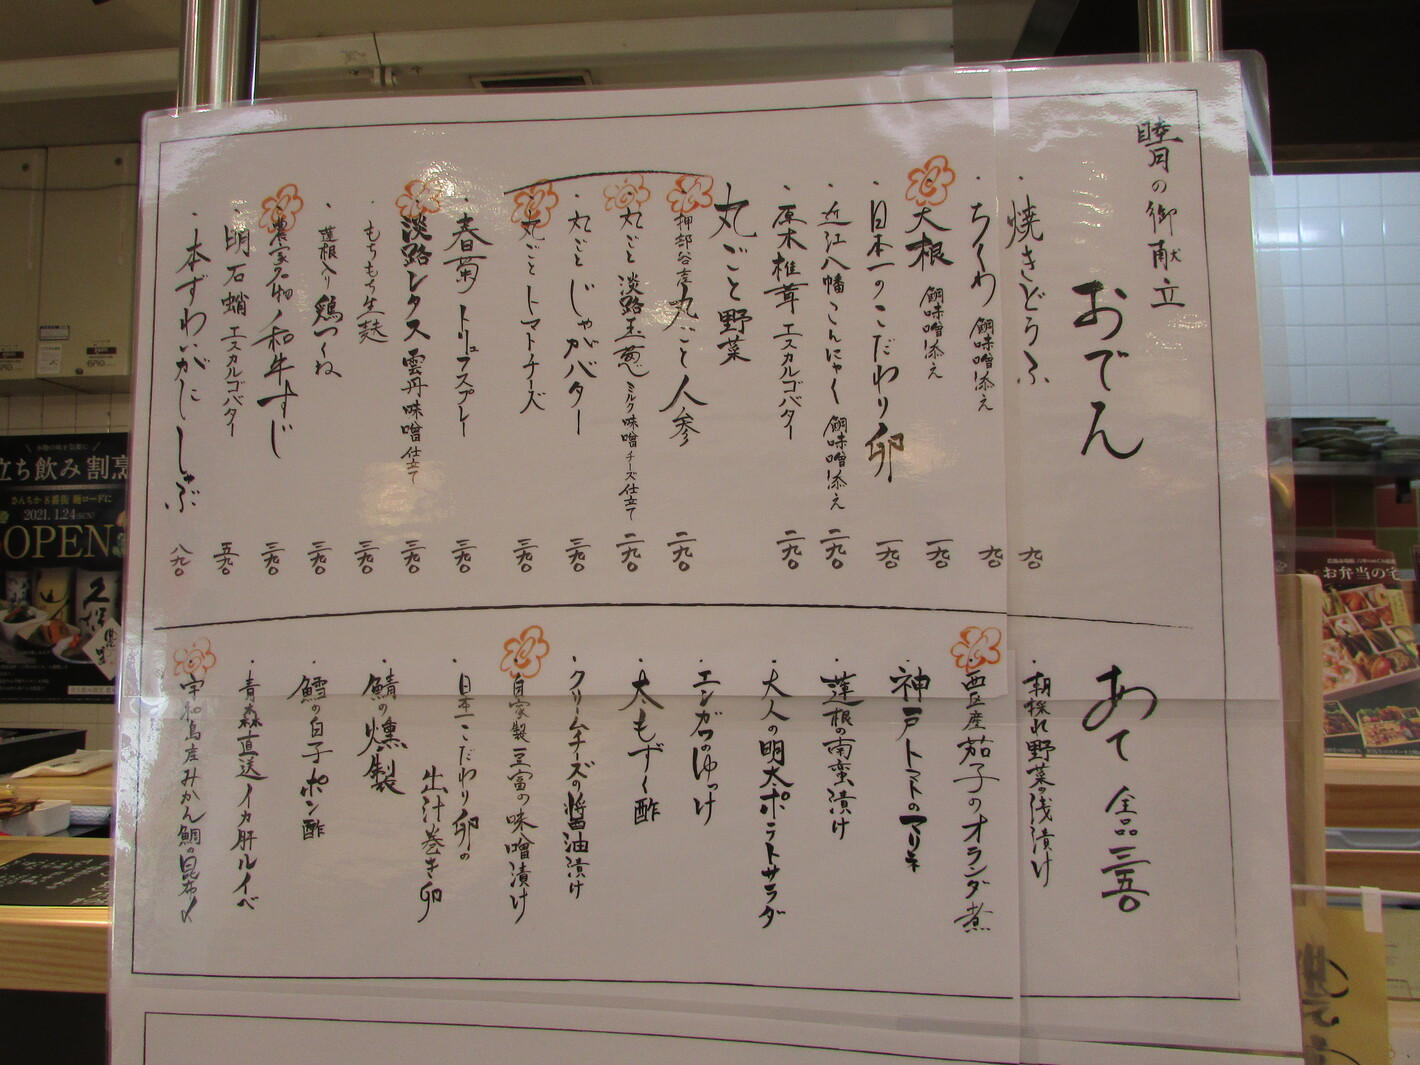 睦月の御献立
おでん
・焼きどうふ 九〇
・ちくわ 鯛味噌添え 九〇
・大根 鯛味噌添え 一九〇
・日本一のこだわり卵 一九〇
・近江八幡こんにゃく 鯛味噌添え 二九〇
・原木椎茸 エスカルゴバター 二九〇
丸ごと野菜
・押部谷産丸ごと人参 二九〇
・丸ごと淡路玉葱 ミルク味噌チーズ仕立て 二九〇
・丸ごとじゃがバター 三九〇
・丸ごとトマトチーズ 三九〇
・春菊トリュフスプレー 三九〇
・淡路レタス 雲丹味噌仕立て 三九〇
・もちもち生麩 三九〇
・蓮根入り鶏つくね 三九〇
・農家名物ノ和牛すじ 三九〇
・明石蛸 エスカルゴバター 五九〇
・本ずわいがにしゃぶ 八九〇
あて 全品三五〇
・朝採れ野菜の浅漬け
・西区産茄子のオランダ煮
・神戸トマトのマリネ
・蓮根の南蛮漬け
・大人の明太ポテトサラダ
・エンガワのゆっけ
・太もずく酢
・クリームチーズの醤油漬け
・自家製豆富の味噌漬け
・日本一こだわり卵の
出汁巻き卵
・鯖の燻製
・鱈の白子ポン酢
・青森直送イカ肝ルイベ
・宇和島産みかん鯛の昆布〆
立ち飲み割烹
さんちか8番街 麺ロードに
2021.1.24(SUN)
OPEN
お弁当の宅